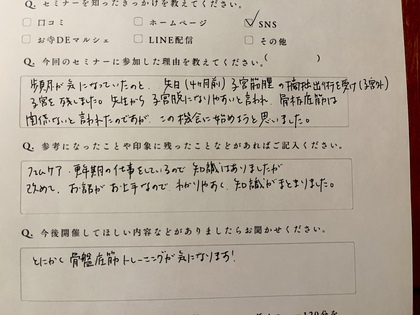 Q. セミナーを知ったきっかけを教えてください。
□ 口コミ □ ホームページ ☑ SNS
□ お寺DEマルシェ □ LINE配信 □ その他
( )
Q. 今回のセミナーに参加した理由を教えてください。
歩頻尿が気になっていたのと、先日(4ヶ月前)子宮筋腫の摘出手術を受け(子宮外)
子宮を残しました。先生から子宮脱になりやすいと言われ、骨盤底筋は
関係ないと言われたのですが、この機会に始めようと思いました。
Q. 参考になったことや印象に残ったことなどがあればご記入ください。
フェムケア・更年期の仕事をしているので知識はありましたが
改めて、お話がお上手なのでわかりやすく、知識がまとまりました。
Q. 今後開催してほしい内容などがありましたらお聞かせください。
とにかく骨盤底筋トレーニングが気になります!
120分を